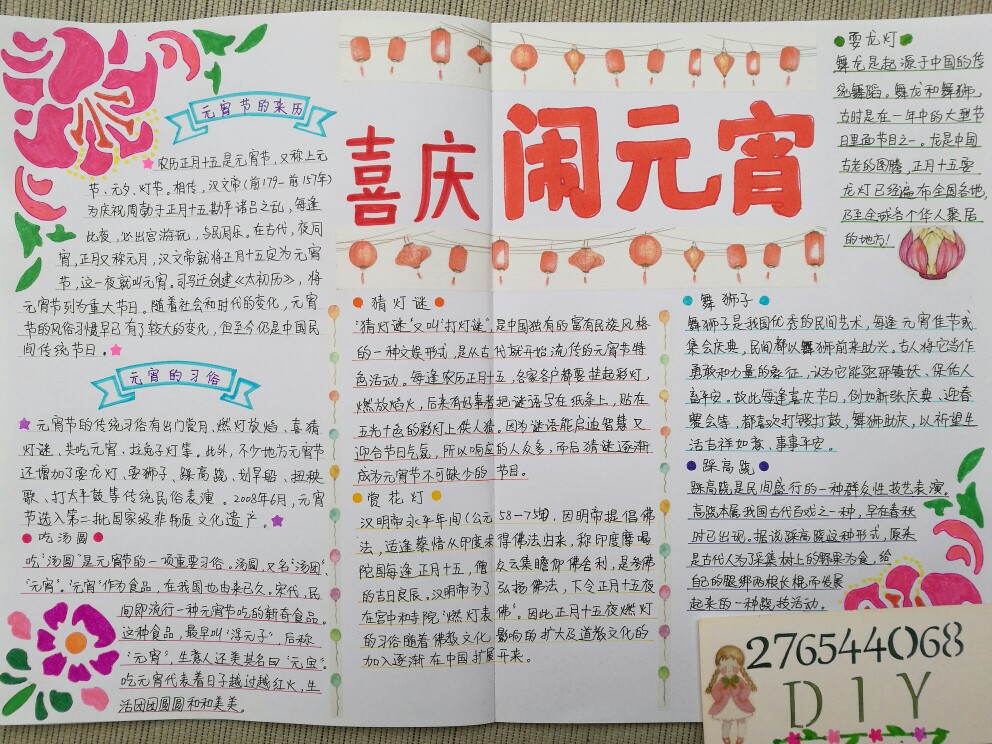 喜庆闹元宵
元宵节的来历
农历正月十五是元宵节，又称上元
节、元夕、灯节。相传，汉文帝（前179—前157年）
为庆祝周勃于正月十五勘平诸吕之乱，每逢
此夜，必出宫游玩，与民同乐。在古代，夜同
宵，正月又称元月，汉文帝就将正月十五定为元宵
节，这一夜就叫元宵。司马迁创建《太初历》，将
元宵节列为重大节日。随着社会和时代的变化，元宵
节的风俗习惯早已有了较大的变化，但至今仍是中国民
间传统节日。
元宵的习俗
元宵节的传统习俗有出门赏月、燃灯放焰、喜猜
灯谜、共吃元宵、拉兔子灯等。此外，不少地方元宵节
还增加了耍龙灯、耍狮子、踩高跷、划旱船、扭秧
歌、打太平鼓等传统民俗表演。2008年6月，元宵
节选入第二批国家级非物质文化遗产。
吃汤圆
吃“汤圆”是元宵节的一项重要习俗。汤圆，又名“汤团”、
“元宵”。“元宵”作为食品，在我国也由来已久。宋代，民
间即流行一种元宵节吃的新奇食品。
这种食品，最早叫“浮元子”，后称
“元宵”，生意人还美其名曰“元宝”。
吃元宵代表着日子越过越红火，生
活团团圆圆和和美美。
猜灯谜
“猜灯谜”又叫“打灯谜”，是中国独有的富有民族风格
的一种文娱形式，是从古代就开始流传的元宵节特
色活动。每逢农历正月十五，各家各户都要挂起彩灯，
燃放焰火，后来有好事者把谜语写在纸条上，贴在
五光十色的彩灯上供人猜。因为谜语能启迪智慧又
迎合节日气氛，所以响应的人众多，而后猜谜逐渐
成为元宵节不可缺少的节目。
赏花灯
汉明帝永平年间（公元58—75年），因明帝提倡佛
法，适逢蔡愔从印度求得佛法归来，称印度摩喝
陀国每逢正月十五，僧众云集瞻仰佛舍利，是参佛
的吉日良辰。汉明帝为了弘扬佛法，下令正月十五夜
在宫中和寺院“燃灯表佛”。因此正月十五夜燃灯
的习俗随着佛教文化影响的扩大及道教文化的
加入逐渐在中国扩展开来。
耍龙灯
舞龙是起源于中国的传
统舞蹈。舞龙和舞狮，
古时是在一年中的大型节
日里面节目之一。龙是中国
古老的图腾，正月十五耍
龙灯已经遍布全国各地，
乃至全球各个华人聚居
的地方！
舞狮子
舞狮子是我国优秀的民间艺术，每逢元宵佳节或
集会庆典，民间都以舞狮前来助兴。古人将它当作
勇敢和力量的象征，认为它能驱邪镇妖、保佑人
畜平安。故此每逢喜庆节日，例如新张庆典、迎春
赛会等，都喜欢打锣打鼓，舞狮助庆，以祈望生
活吉祥如意，事事平安。
踩高跷
踩高跷是民间盛行的一种群众性技艺表演。
高跷本属我国古代百戏之一种，早在春秋
时已出现。据说踩高跷这种形式，原来
是古代人为了采集树上的野果为食，给
自己的腿绑两根长棍而发展
起来的一种跷技活动。
276544068
DIY